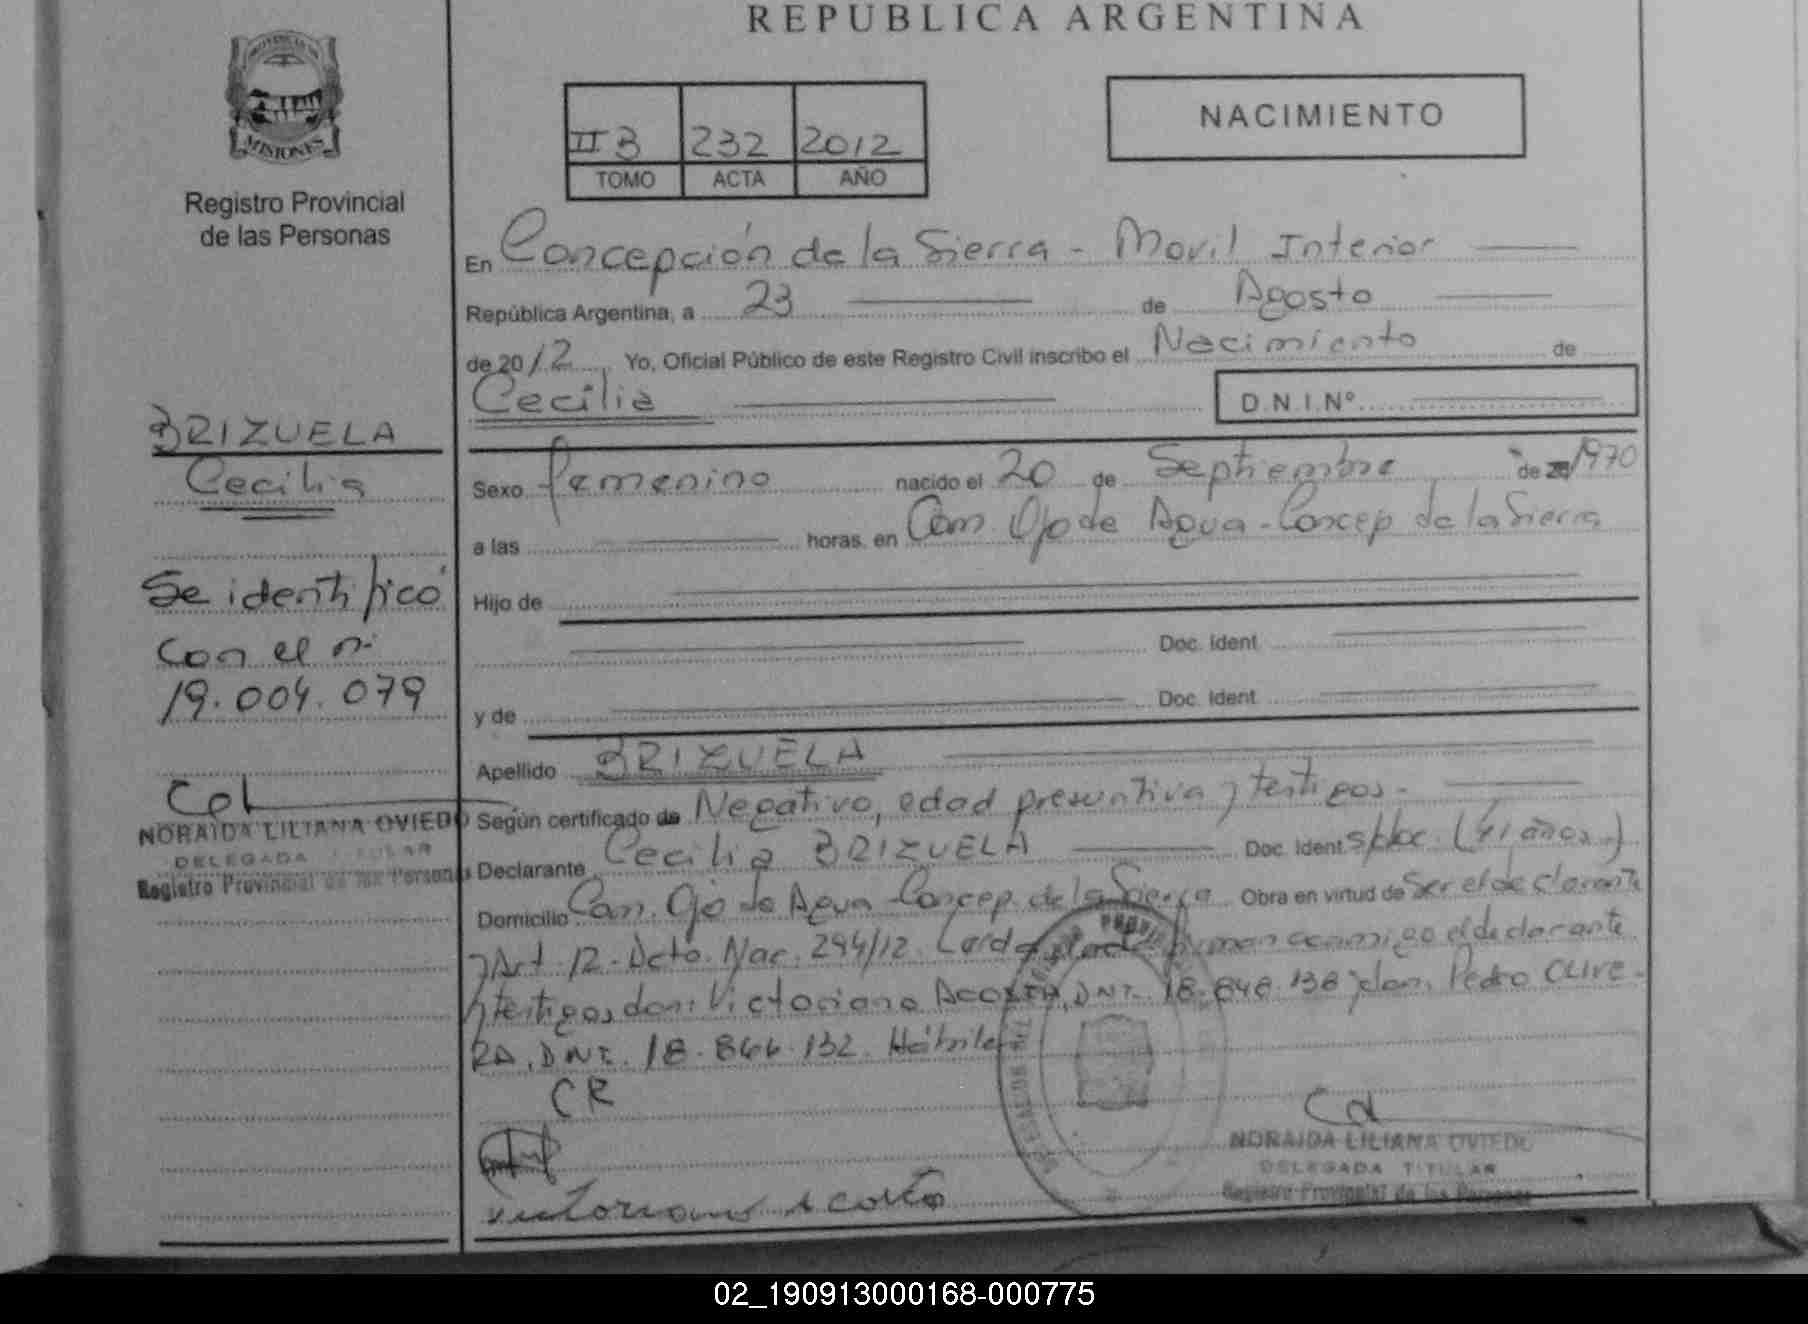 REPUBLICA ARGENTINA
PROVINCIA DE
MISIONES
Registro Provincial
de las Personas
II B 232 2012
TOMO ACTA AÑO
NACIMIENTO
En Concepción de la Sierra - Movil Interior
República Argentina, a 23 de Agosto
de 2012 Yo, Oficial Público de este Registro Civil inscribo el Nacimiento de
Cecilia D.N.I.Nº
BRIZUELA
Cecilia
Se identificó
con el n:
19.004.079
NORAIDA LILIANA OVIEDO
DELEGADA TITULAR
Registro Provincial de las Personas
Sexo femenino nacido el 20 de Septiembre de 1970
a las horas, en Cam. Ojo de Agua - Concep de la Sierra
Hijo de
Doc. Ident.
y de Doc. Ident.
Apellido BRIZUELA
Según certificado de Negativo, edad presuntiva y testigos.
Declarante Cecilia BRIZUELA Doc. Ident. s/doc. (41 años.)
Domicilio Cam. Ojo de Agua - Concep. de la Sierra Obra en virtud de Ser el declarante
y Art. 12 - Dcto. Nac. 294/12. Leída el acta firman conmigo el declarante
y testigos don: Victoriano ACOSTA, DNI. 18.848.138 y don. Pedro OLIVE-
RA, DNI. 18.844.132. Hábiles
CR
Victoriano Acosta
NORAIDA LILIANA OVIEDO
DELEGADA TITULAR
Registro Provincial de las Personas
02_190913000168-000775